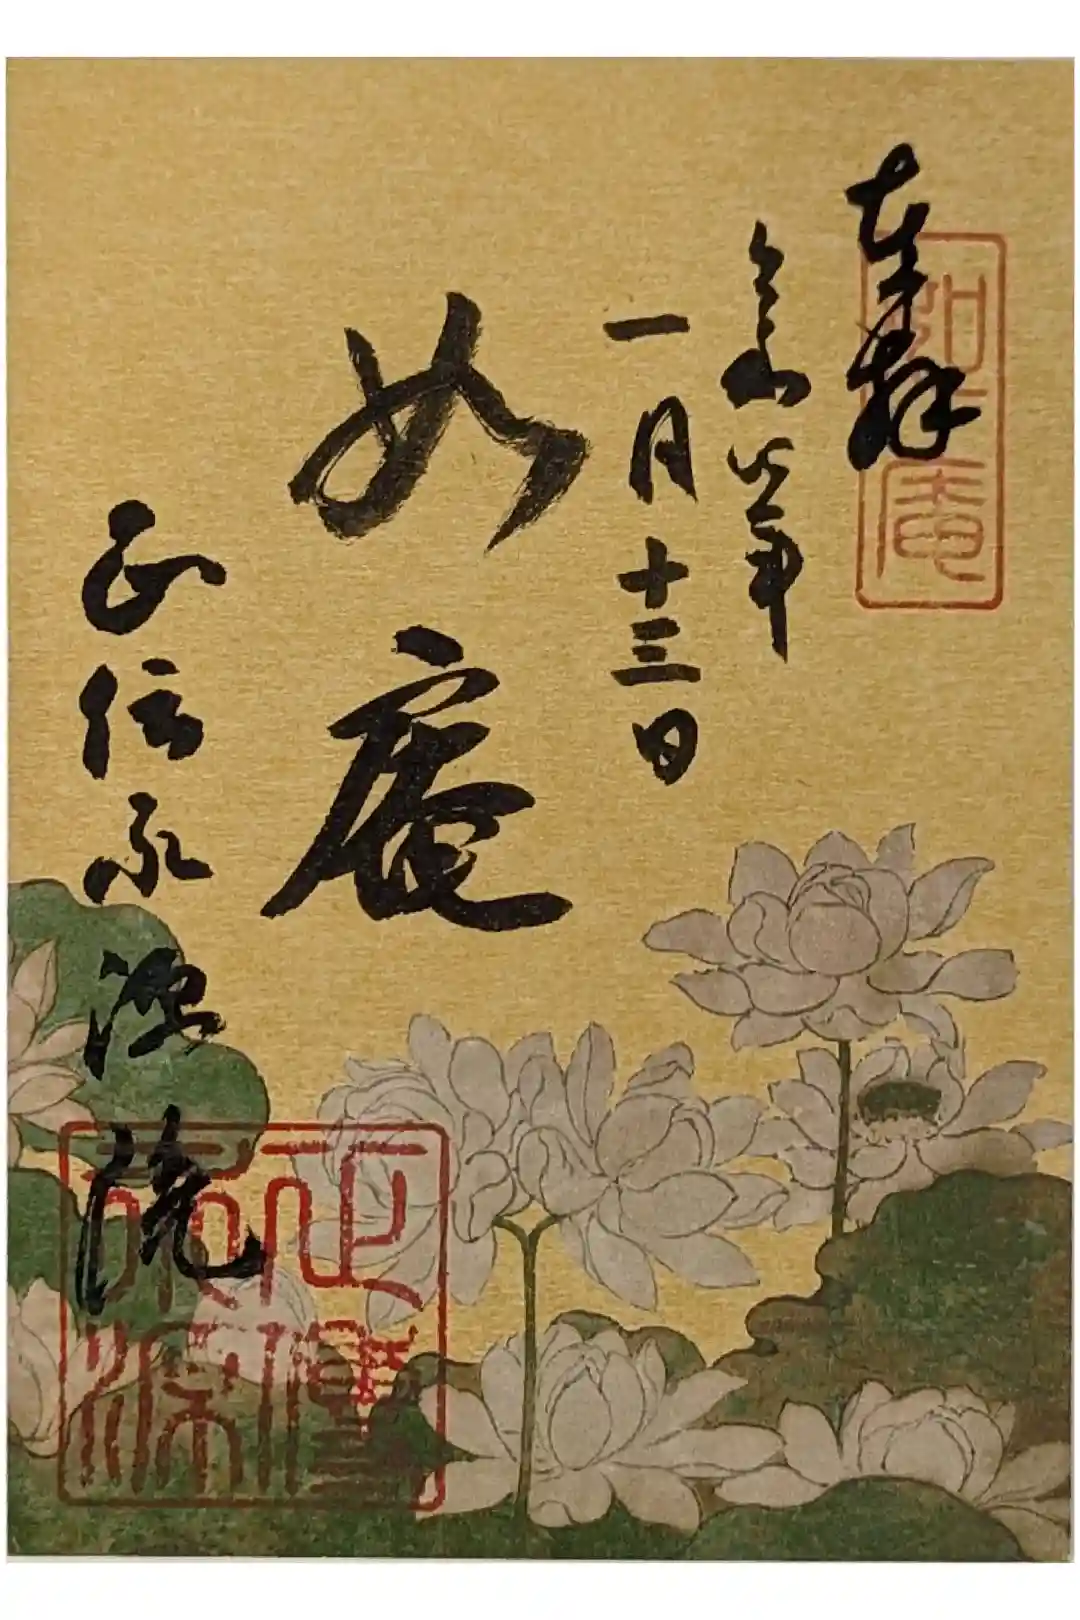 奉拝
如庵
令和年
一月十三日
如庵
正伝永源院
正傳
永源